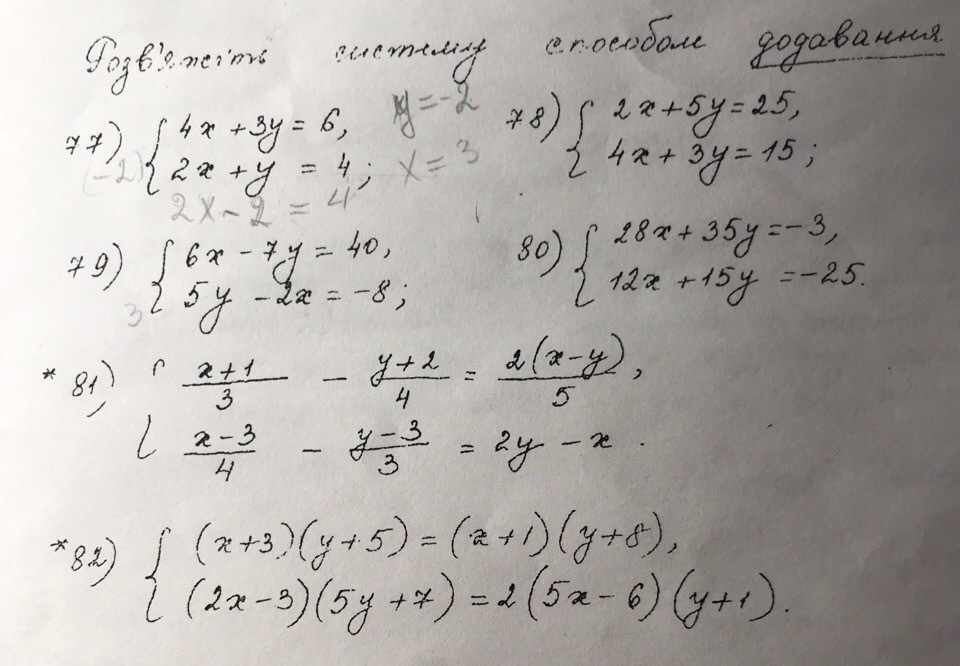 Розв'яжіть систему способом додавання
77) { 4x + 3y = 6, y = -2
(-2) 2x + y = 4; x = 3
2x - 2 = 4
78) { 2x + 5y = 25,
4x + 3y = 15;
79) { 6x - 7y = 40,
3 5y - 2x = -8;
80) { 28x + 35y = -3,
12x + 15y = -25.
*81) { (x+1)/3 - (y+2)/4 = 2(x-y)/5,
(x-3)/4 - (y-3)/3 = 2y - x.
*82) { (x+3)(y+5) = (x+1)(y+8),
(2x-3)(5y+7) = 2(5x-6)(y+1).